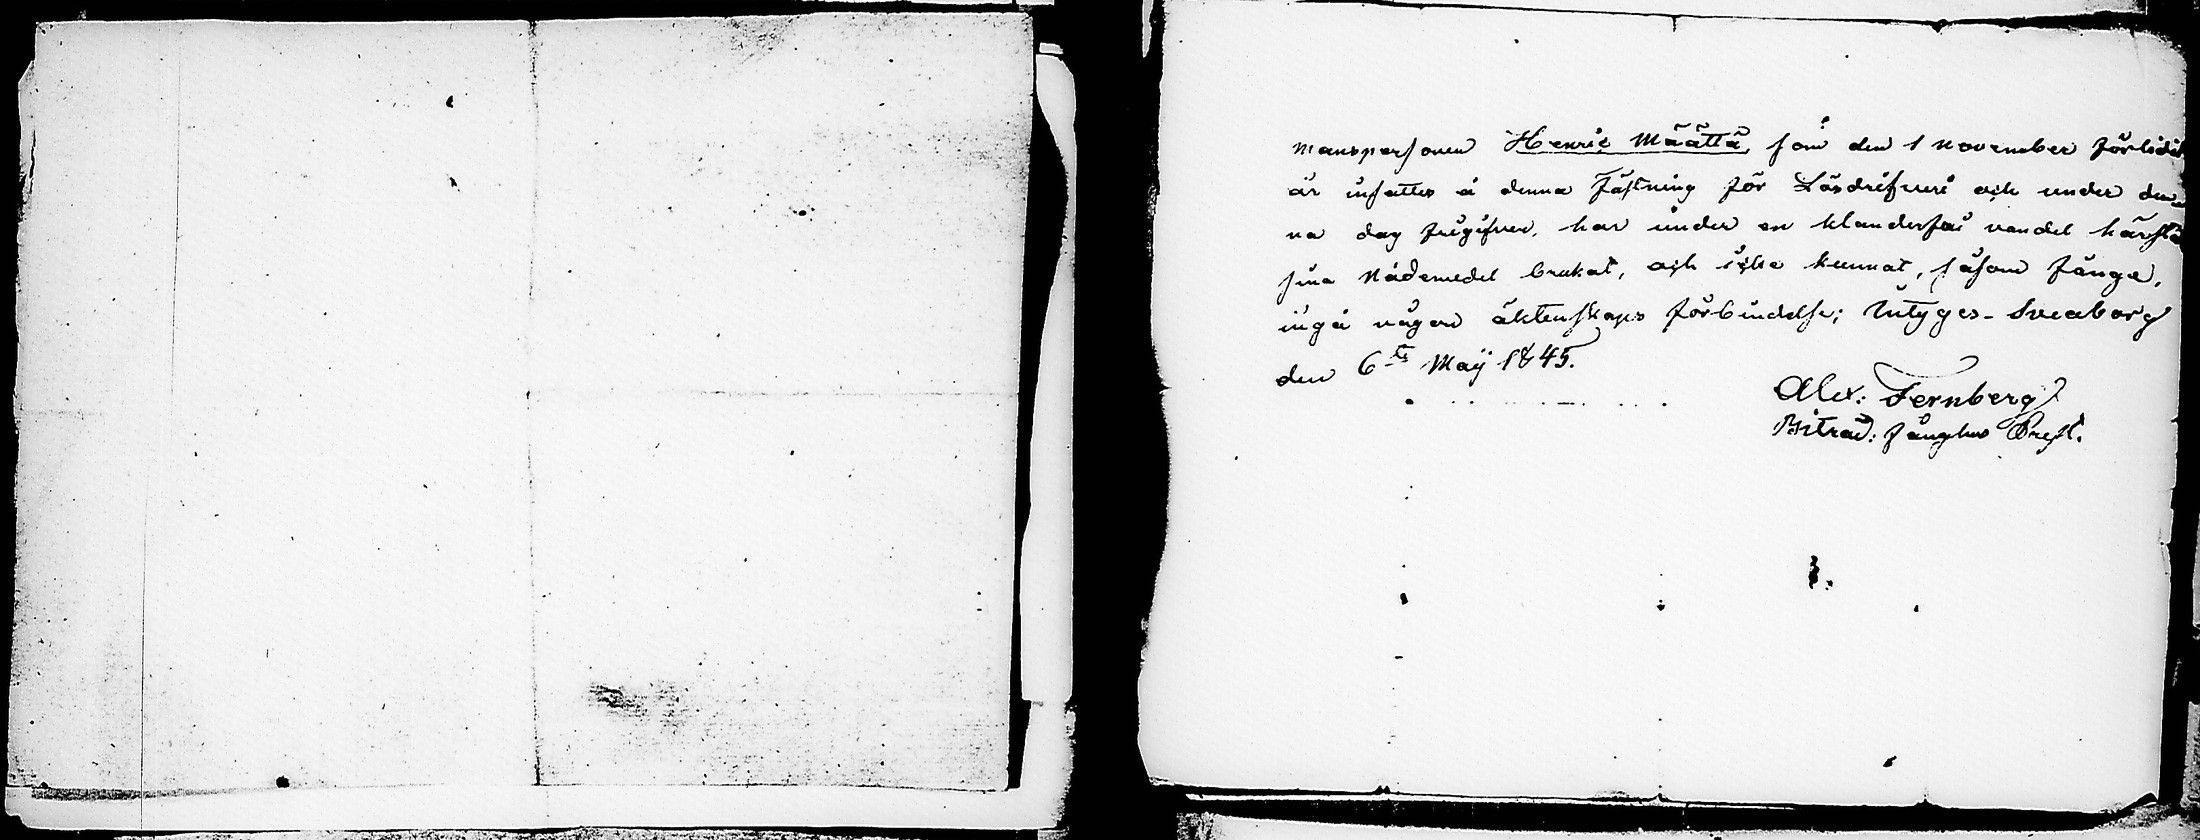 Manspersonen Henric Määttä, som den 1 November förlidit
år insattes å denna Fästning för Lösdrifveri och under den-
na dag frigifven, har under en klanderfri vandel härstä
sina Nådemedel brukat, och icke kunnat, såsom fånge,
ingå någon äktenskaps förbindelse; Intyges - Sveaborg
den 6te Maij 1845.
Alex: Fernberg
Biträd: Fängelse Prest.